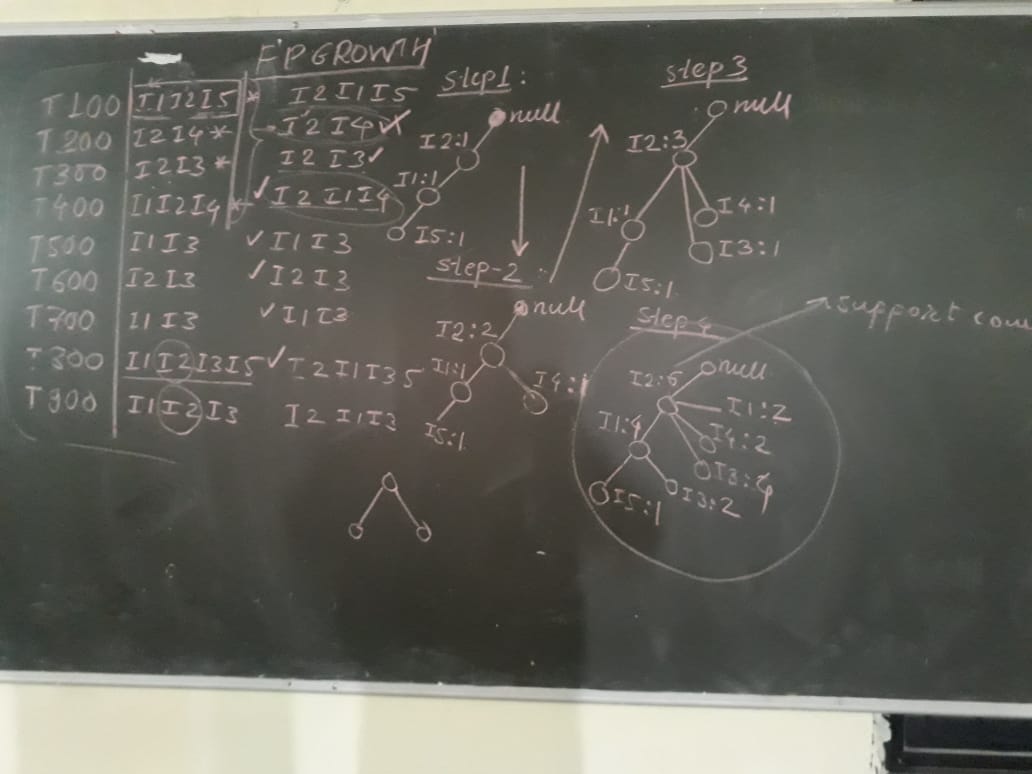 FP GROWTH
T100 I1I2I5 * I2 I1 I5
T200 I2I4 * I2 I4
T300 I2I3 * I2 I3 ✓
T400 I1I2I4 * ✓ I2 I1I4
T500 I1I3 ✓ I1I3
T600 I2I3 ✓ I2 I3
T700 I1I3 ✓ I1I3
T800 I1I2I3I5 ✓ I2I1I35
T900 I1I2I3 I2 I1I3
Step1:
null
I2:1
I1:1
I5:1
step-2
null
I2:2
I1:1
I4:1
I5:1
step3
null
I2:3
I1:1
I4:1
I3:1
I5:1
Step
support
null
I2:6
I1:2
I1:4
I4:2
I3:4
I5:1
I3:2